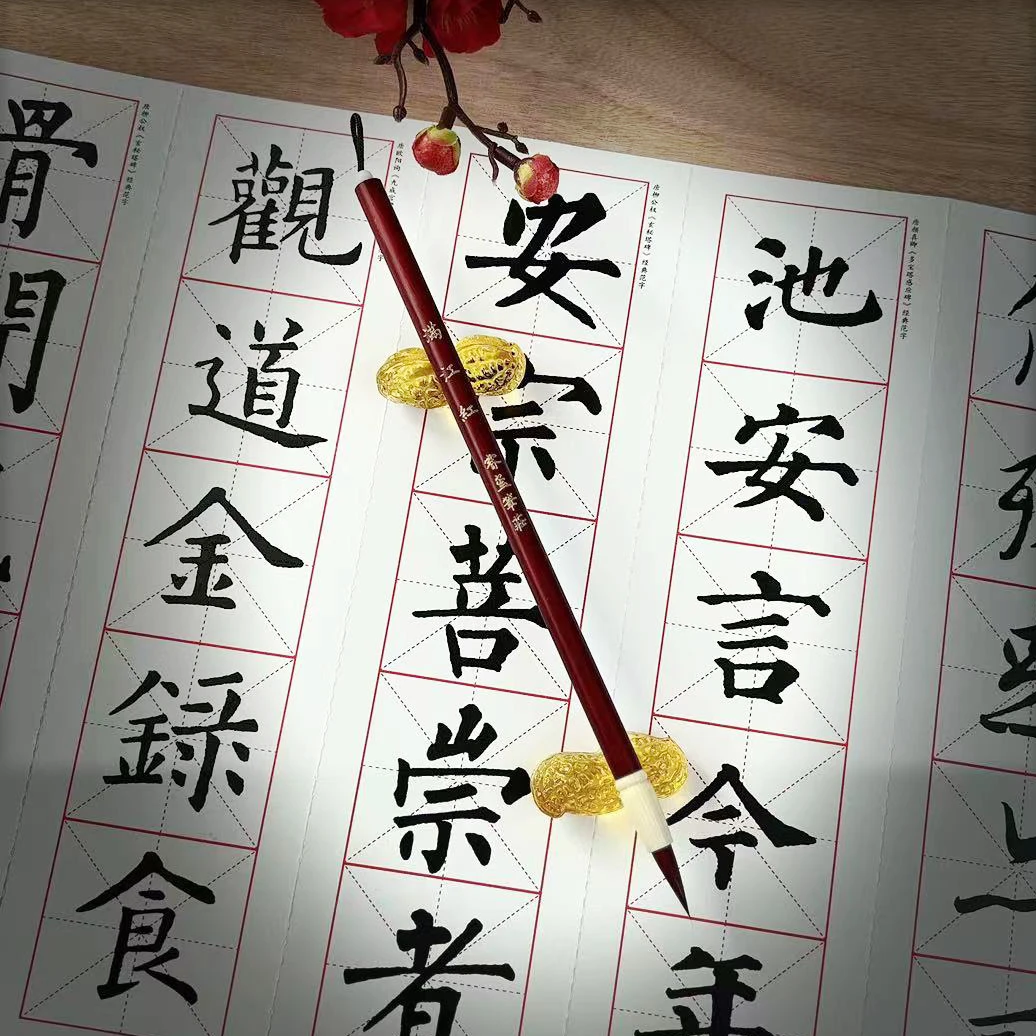 唐颜真卿《多宝塔感应碑》经典范字
池安言今年
唐柳公权《玄秘塔碑》经典范字
安宗菩崇者
满江紅
筆莊
唐欧阳询《九成
字
觀道金録食
唐柳公权《玄秘塔碑》经典范字
骨